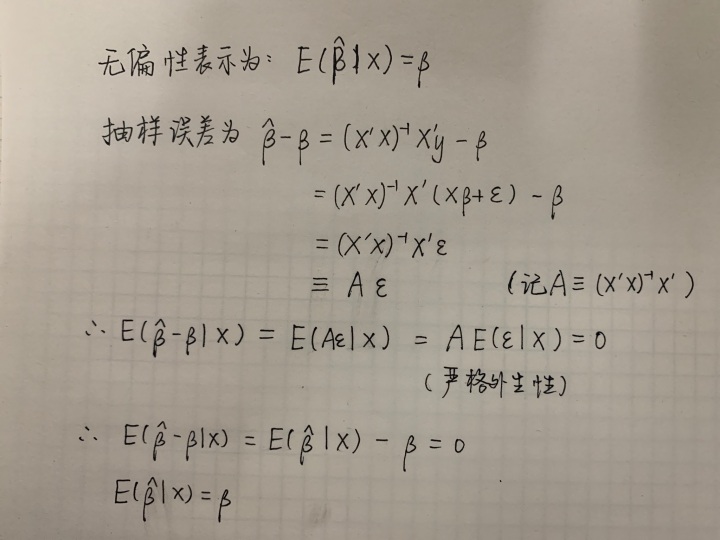 无偏性表示为: E(β̂|X)=β
抽样误差为 β̂-β = (X'X)⁻¹X'y - β
= (X'X)⁻¹X'(Xβ+ε) - β
= (X'X)⁻¹X'ε
≡ Aε (记A≡(X'X)⁻¹X')
∴ E(β̂-β|X) = E(Aε|X) = AE(ε|X)=0
(严格外生性)
∴ E(β̂-β|X) = E(β̂|X) - β = 0
E(β̂|X)=β